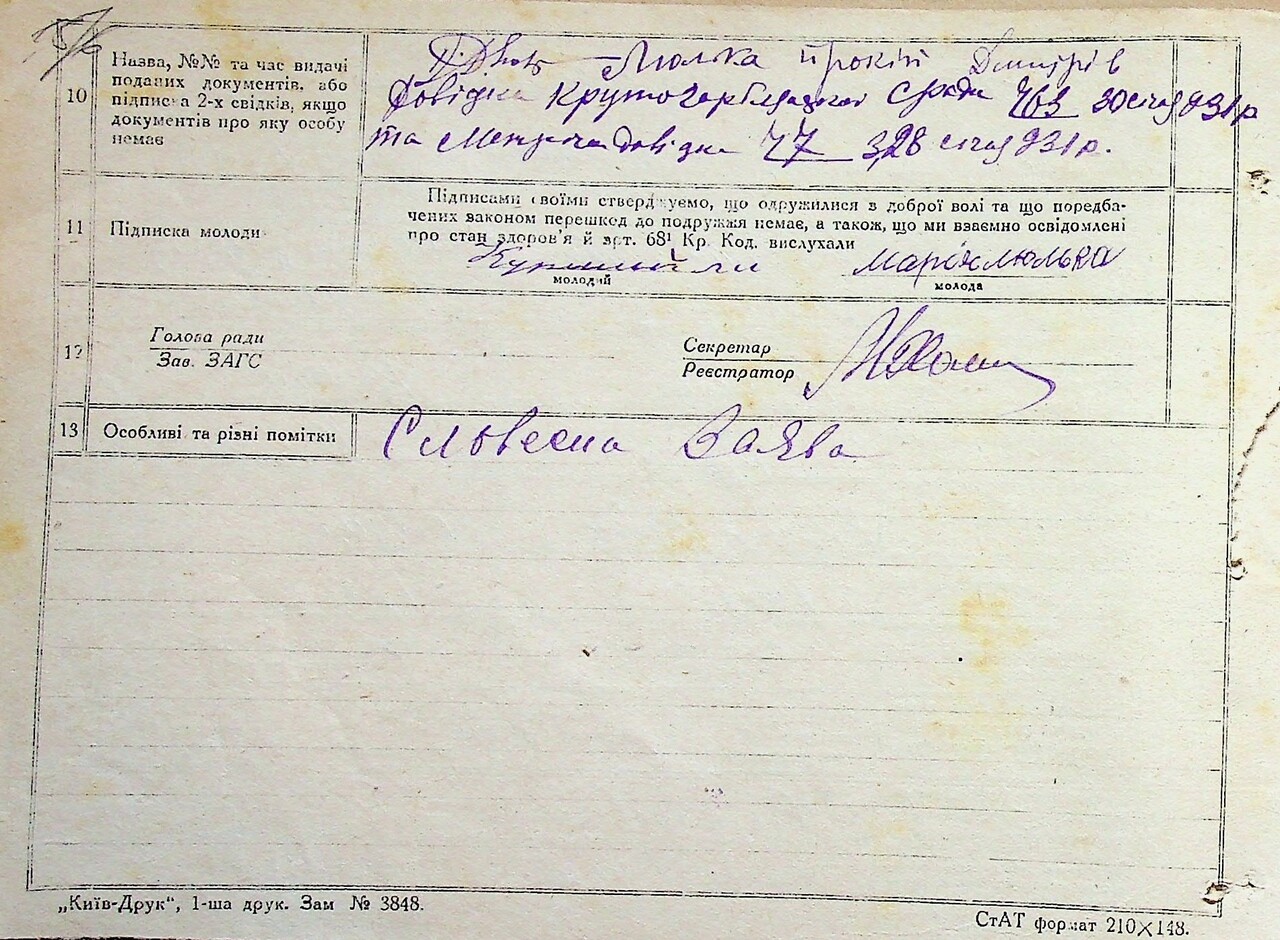 5/6
10 Назва, №№ та час видачі
поданих документів, або
підписа 2-х свідків, якщо
документів про яку особу
немає
Люлька Прокіп Дмитрів
Довідка сради 763 30 січня 931 р
та довідка 77 3, 28 січня 931 р.
11 Підписка молоди
Підписами своїми стверджуємо, що одружилися з доброї волі та що поредба-
чених законом перешкод до подружжя немає, а також, що ми взаємно освідомлені
про стан здоров'я й арт. 68¹ Кр. Код. вислухали
Марія Люлька
молодий молода
12 Голова ради Секретар
Зав. ЗАГС Реєстратор
13 Особливі та різні помітки Словесна Заява
„Київ-Друк“, 1-ша друк. Зам № 3848.
СтАТ формат 210×148.